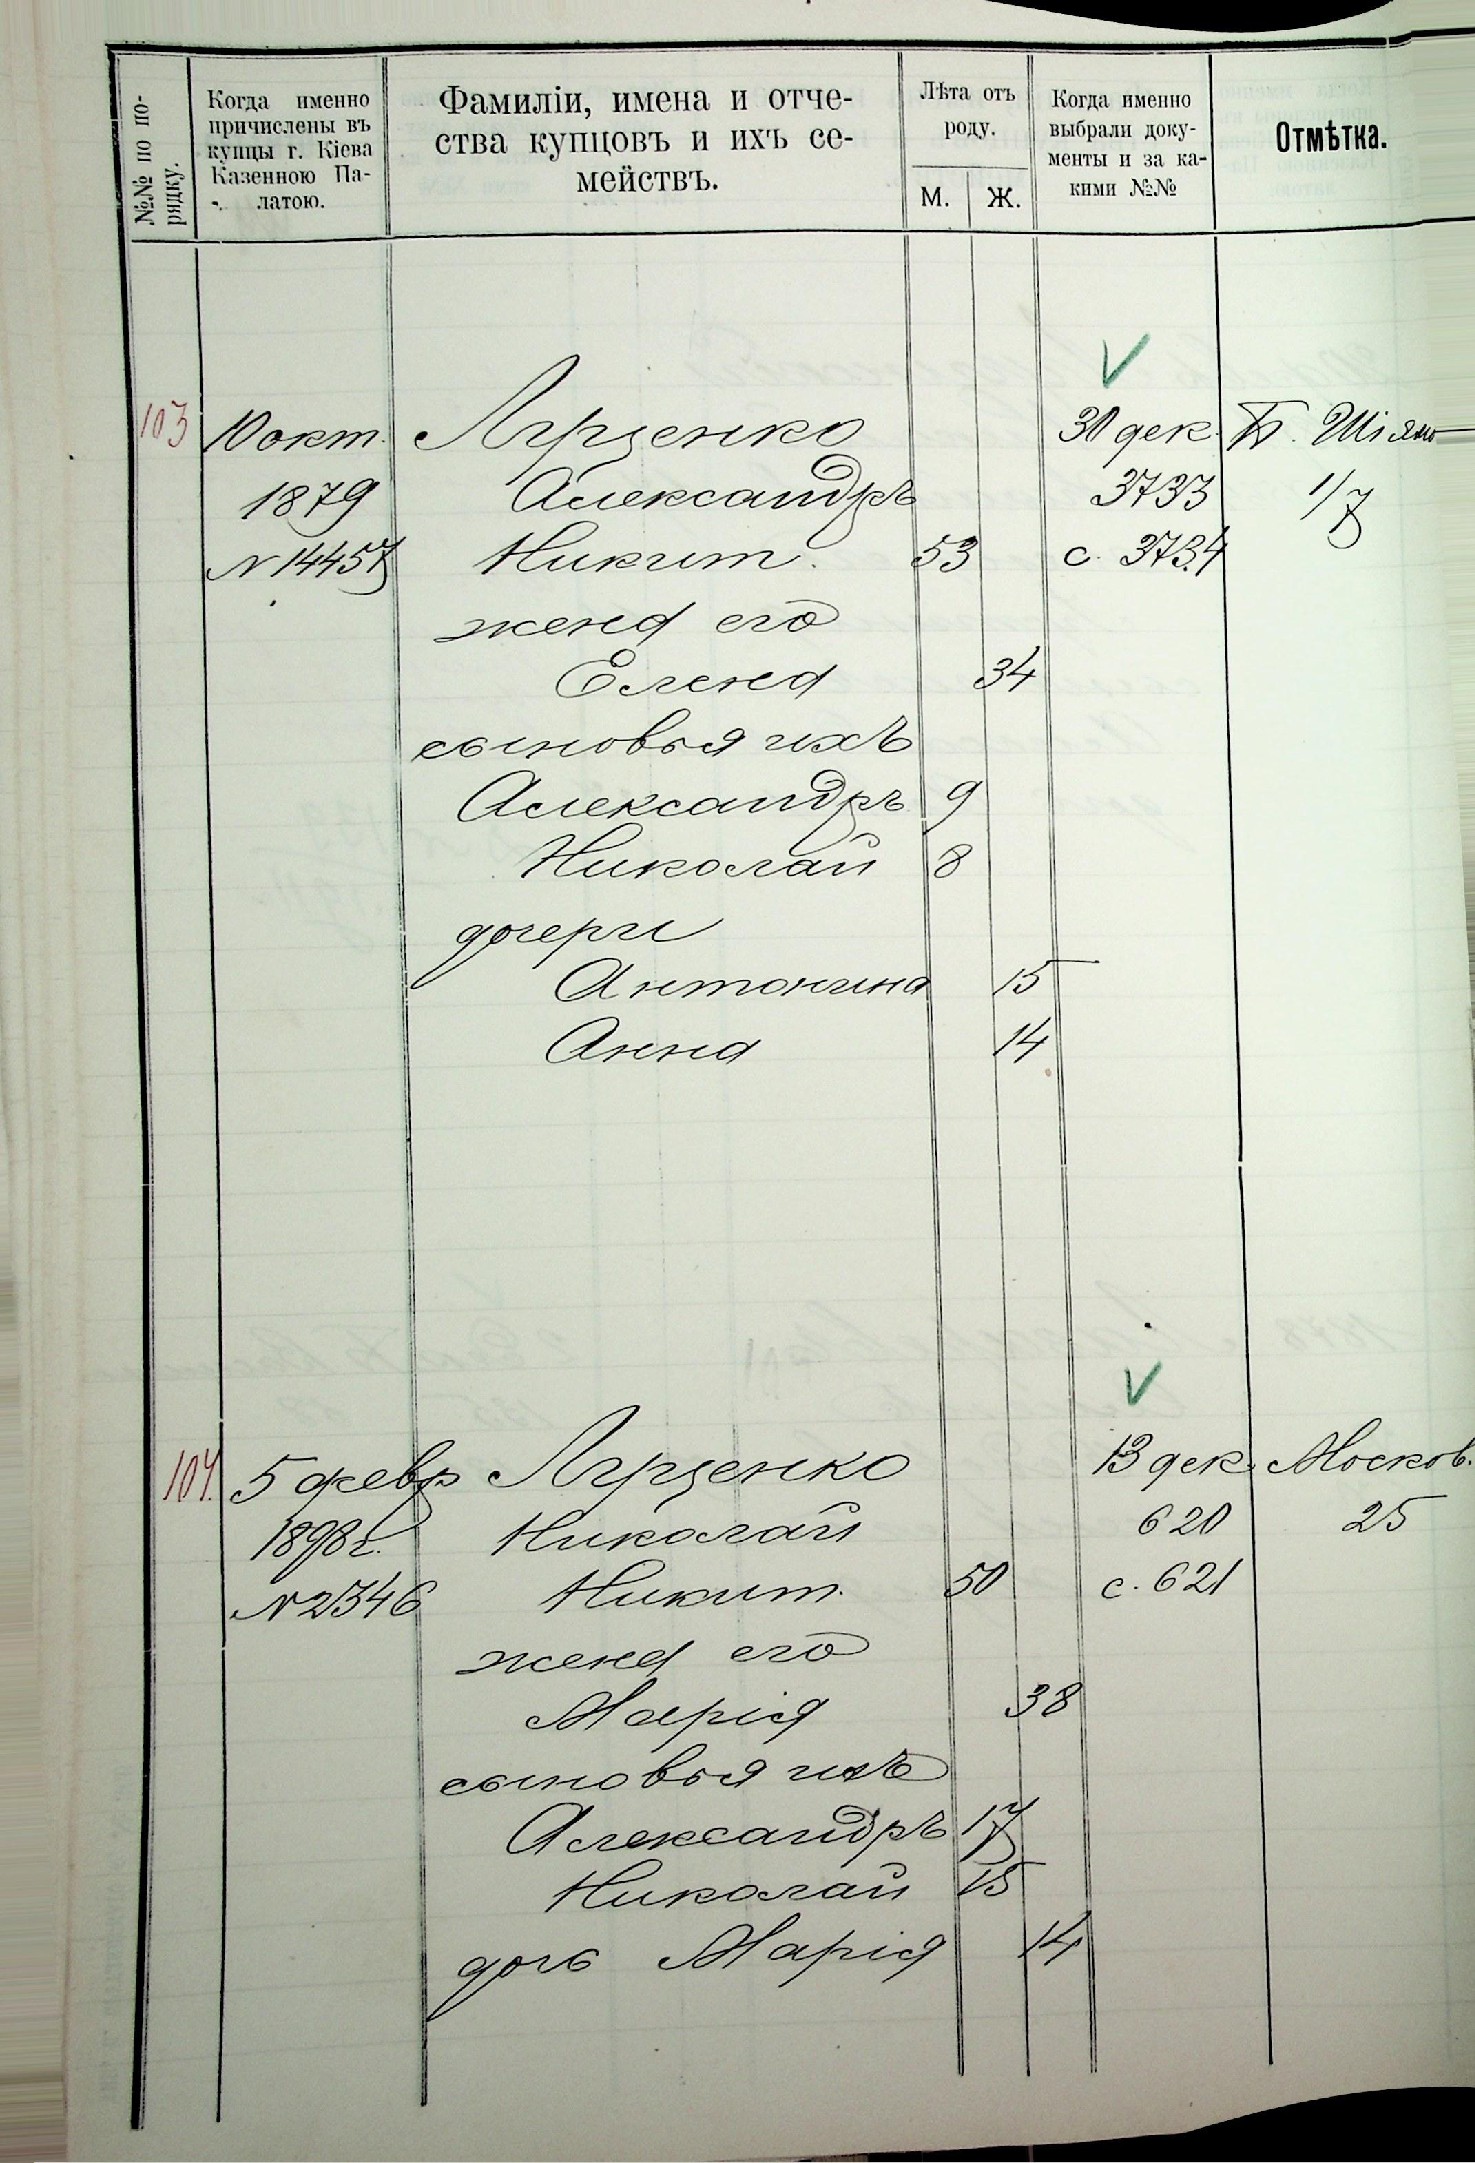 №№ по по-
рядку.
Когда именно
причислены въ
купцы г. Кіева
Казенною Па-
латою.
Фамиліи, имена и отче-
ства купцовъ и ихъ се-
мействъ.
Лѣта отъ
роду.
М. Ж.
Когда именно
выбрали доку-
менты и за ка-
кими №№
Отмѣтка.
103 10 окт. Луценко 30 дек.
1879 Александръ 3733 1/7
N 14457 Никит. 53 с. 3734
жена его
Елена 34
сыновья ихъ
Александръ 9
Николай 8
дочери
Антонина 15
Анна 14
104. 5 февр Луценко 13 дек. Москов.
1898 г. Николай 620 25
N 2346 Никит. 50 с. 621
жена его
Марія 38
сыновья ихъ
Александръ 17
Николай 15
дочь Марія 14